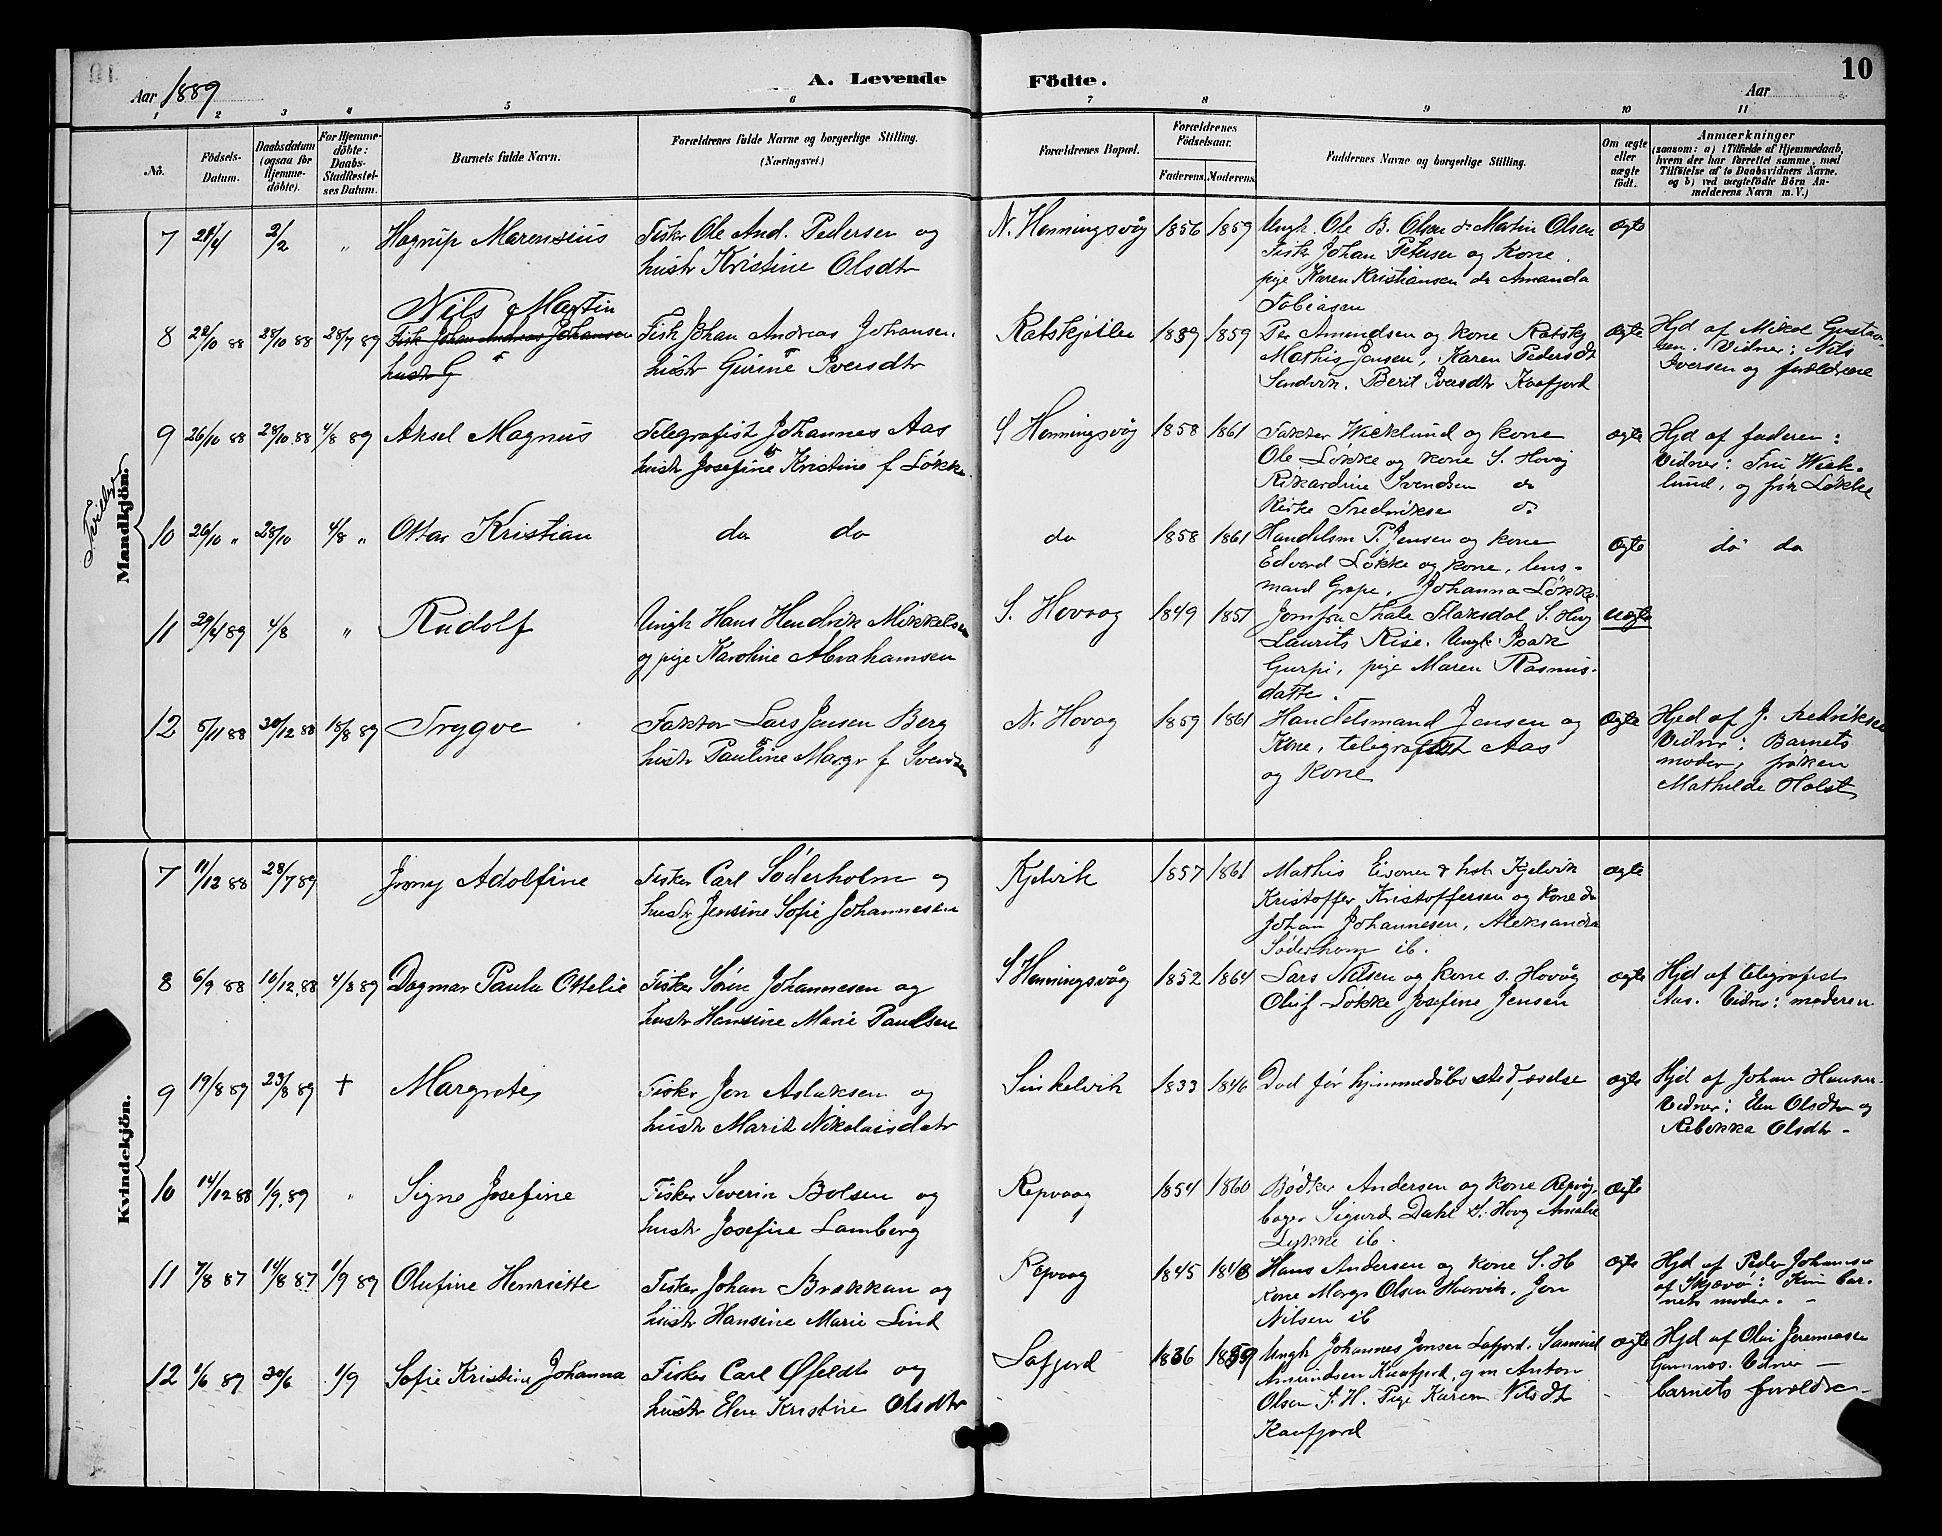 10
Aar 1889
A. Levende Fødte.
Aar
1 2 3 4 5 6 7 8 9 10 11
No.
Födsels-Datum.
Daabsdatum (ogsaa for Hjemmedöbte).
For Hjemmedöbte: Daabs-Stadfæstelses Datum.
Barnets fulde Navn.
Forældrenes fulde Navne og borgerlige Stilling. (Næringsvei.)
Forældrenes Bopæl.
Forældrenes Födselsaar.
Faderens. Moderens.
Faddernes Navne og borgerlige Stilling.
Om ægte eller uægte födt.
Anmærkninger
(saasom: a) i Tilfælde af Hjemmedaab, hvem der har forrettet samme, med Tilföielse af to Daabsvidners Navne, og b) ved uægtefödte Börn Anmelderens Navn m. V.)
Mandkjön.
Tvillinger
7 21/4 2/2 " Hagrup Marensius Fisker Ole And. Pedersen og N. Honningsvåg 1856 1859 Ungk. Ole B. Olsen do Martin Olsen ægte
hustr Kristine Olsdtr Fisk Johan Petersen og Kone.
pige Karen Kristiansen do Amanda
Tobiasen
Nils Martin
8 22/10 88 28/10 88 28/7 89 Fisk Johan Andreas Johansen Fisk Johan Andreas Johansen. Ratskjeilen 1839 1859 Per Amundsen og kone Ratskj ægte Hjd af Mikal Gustav-
hustr G hustr Gurine Iversdtr Mathis Jensen, Karen Pedersdt sen. Vidner: Nils
Sandvik. Berit Iversdtr Kaafjord Iversen og forældrene
9 26/10 88 28/10 88 4/8 89 Aksel Magnus Telegrafist Johannes Aas S Honningsvåg 1858 1861 Faktor Wicklund og kone ægte Hjd af faderen:
hustr Josefine Kristine f Løkke. Ole Løkke og kone S. Hovåg Vidner: Fru Wick-
Rikardine Svendsen do lund, og frøk Løkke
Rikke Fredriksen do
10 26/10 " 28/10 4/8 " Ottar Kristian do do do 1858 1861 Handelsm P. Jensen og kone ægte do do
Edvard Løkke og kone, lens-
mand Grape, Johanna Løkke.
11 29/4 89 4/8 " Rudolf Ungk Hans Hendrik Mikkelsen S. Hovaag 1849 1851 Jomfru Thale Flaksdal S. Hvg uægte
og pige Karoline Abrahamsen Laurits Rise. Ungk Isak
Gurpi, pige Maren Rasmus-
datte.
12 5/11 88 30/12 88 18/8 89 Trygve Faktor Lars Jensen Berg N. Hovag 1859 1861 Handelsmand Jensen og ægte Hjed af J. Fredriksen
hustr Pauline Margr f Svendsen Kone, telegrafist Aas Vidner: Barnets
og Kone moder, frøken
Mathilde Holst
Kvindekjön.
7 11/12 88 28/7 89 Jenny Adolfine Fisker Carl Söderholm og Kjelvik 1857 1861 Mathis Eisonen & hst Kjelvik ægte
hustr Jensine Sofie Johannesen Kristoffer Kristoffersen og Kone do
Johan Johannesen, Aleksandra
Søderhom ib.
8 6/9 88 16/12.88 4/8 89 Dagmar Paula Ottelie Fisker Sørin Johannesen og S Honningsvåg 1852 1864 Lars Nilsen og kone s. Hovåg ægte Hjd af telegrafist
hustr Hansine Marie Paulsen Oluf Løkke Josefine Jensen Aas. Vidner: moderen
9 19/8 89 23/8 89 + Margrete Fisker Jon Aslaksen og Sinkelvik 1833 1846 Død før hjemmedåbs stadfestelse ægte Hjd af Johan Hansen.
hustr Marit Nikolaisdatr Vidner: Elen Olsdtr og
Rebekka Olsdtr -
10 14/12 88 1/9.89 " Signe Josefine Fisker Severin Bolsen og Repvaag 1854 1860 Bødker Andersen og kone Repvåg. ægte
hustr Josefine Lamberg bager Sigurd Dahl S. Hovg Amalie
Lykke ib.
11 7/8 87 14/8 87 1/9 89 Olufine Henriette Fisker Johan Brakkan og Repvaag 1845 1848 Hans Andersen og kone S. H ægte Hjd af Peder Johansen
hustr Hansine Marie Lind kone Margr Olsen Hoirvik, Jon af Skjævø: Kun bar-
Nilsen ib nets moder. -
12 1/6 89 30/6 1/9 Sofie Kristine Johanna Fisker Carl Øfeldt og Lafjord 1836 1859 Ungk Johannes Jonsen Lafjord. Samuel ægte Hjd af Olai Jeremiasen
hustr Elen Kristine Olsdtr Amundsen Kaafjord, gm Anton Gamnes. Vidner -
Olsen S. H. Pige Karen Nilsdt barnets forældre -
Kaafjord